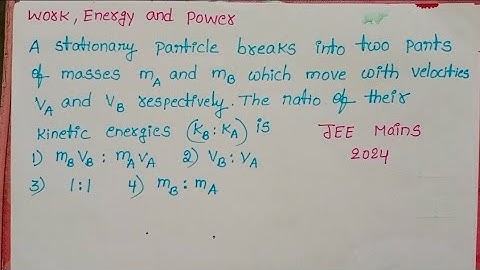 Work, Energy and Power
A stationary particle breaks into two parts
of masses mA and mB which move with velocities
VA and VB respectively. The ratio of their
kinetic energies (KB : KA) is
JEE Mains
2024
1) mB VB : mA VA 2) VB : VA
3) 1:1 4) mB : mA